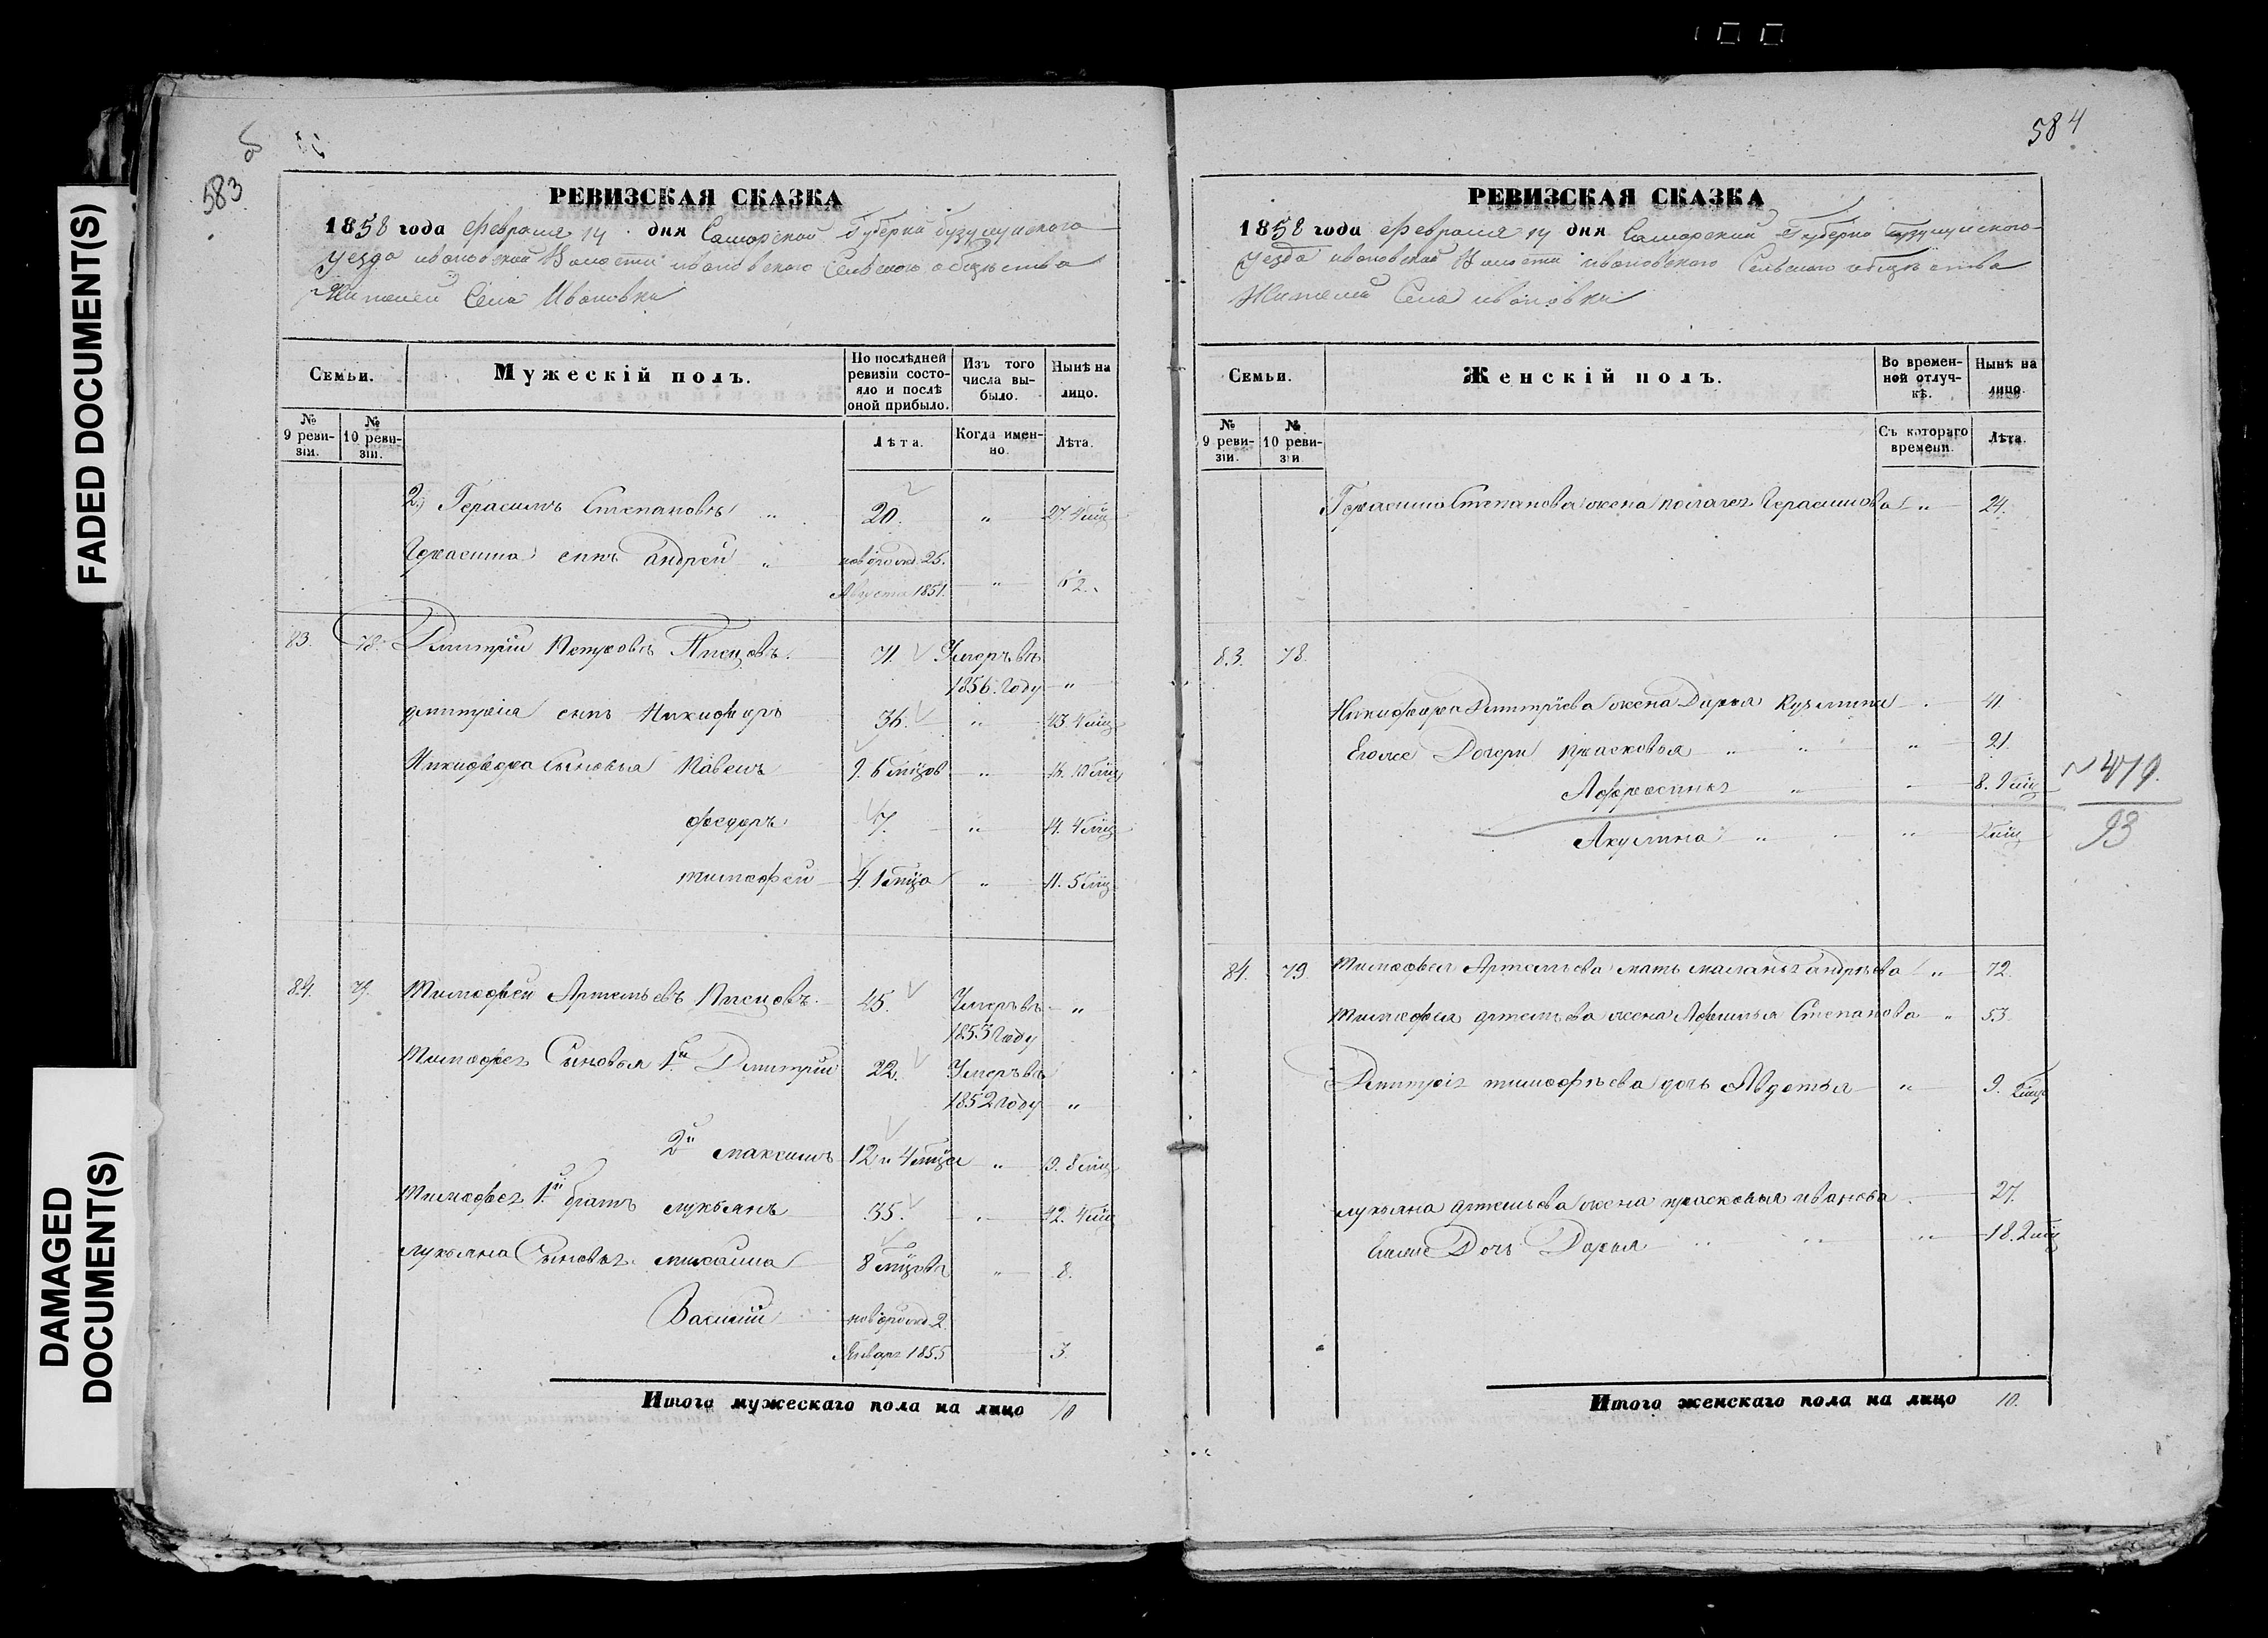 583
584
FADED DOCUMENT(S)
DAMAGED
DOCUMENT(S)
РЕВИЗСКАЯ СКАЗКА
1858 года Февраля 14 дня Самарской Губерни Бузулуцкого
уезда ивановской Волости ивановского Сельского общества
Жителей Села Ивановки
Семьи.
Мужескій полъ.
По послѣдней ревизіи состояло и послѣ оной прибыло.
Изъ того числа выбыло.
Нынѣ на лицо.
№ 9 ревизіи.
№ 10 ревизіи.
Лѣта.
Когда именно.
Лѣта.
2. Герасимъ Степановъ " 20. " 27. 4 мц
Герасима сынъ андрей " новорожд. 25. Августа 1851. "
83. 78. Дмитрій Петровъ Писцовъ. 71. Умеръ въ 1856. году "
дмитрія сынъ Никифоръ 36. " 43. 4 мц
Никифора Сыновья Павелъ 9. 6 мцов " 16. 10 мц
федоръ 7. " 14. 4 мц
тимофей 4. 1 мца " 11. 5 мц
84. 79. Тимофей Артемьевъ Писцовъ. 45. Умеръ въ 1853 году "
Тимофея Сыновья 1й Дмитрій 22. Умеръ въ 1852 году "
2й максимъ 12 и 4 мца " 19. 8 мц
Тимофея 1й братъ лукьянъ 35. " 42. 4 мц
лукьяна Сыновья михаила 8 мцовъ " 8.
Василий новорожд. 2. Января 1855 3.
Итого мужескаго пола на лицо 10
РЕВИЗСКАЯ СКАЗКА
1858 года Февраля 14 дня Самарский Губерно Бузулуцкого
Уезда ивановской Волости ивановского Сельского общества
Жителей Села ивановки
Семьи.
Женскій полъ.
Во временной отлучкѣ.
Нынѣ на лицо.
№ 9 ревизіи.
№ 10 ревизіи
Съ котораго времени.
Лѣта.
Герасима Степанова жена пелагея Герасимова " 24.
83. 78.
Никифора Дмитріева жена Дарья Кузмина 41.
Егоже Дочери прасковья " " " 21.
Афросинья " 8. 9 мц
Акулина "
№ 479.
93
84. 79. Тимофея Артемьева мать маланья андрѣева " 72.
Тимофея артемьева жена Афимья Степанова " 53.
Дмитрія тимофѣева дочь Авдотья " 9. 2 мц
лукьяна артемьева жена прасковья иванова 27.
Дочь Дарья " " " 18. 2 мц
Итого женскаго пола на лицо 10.